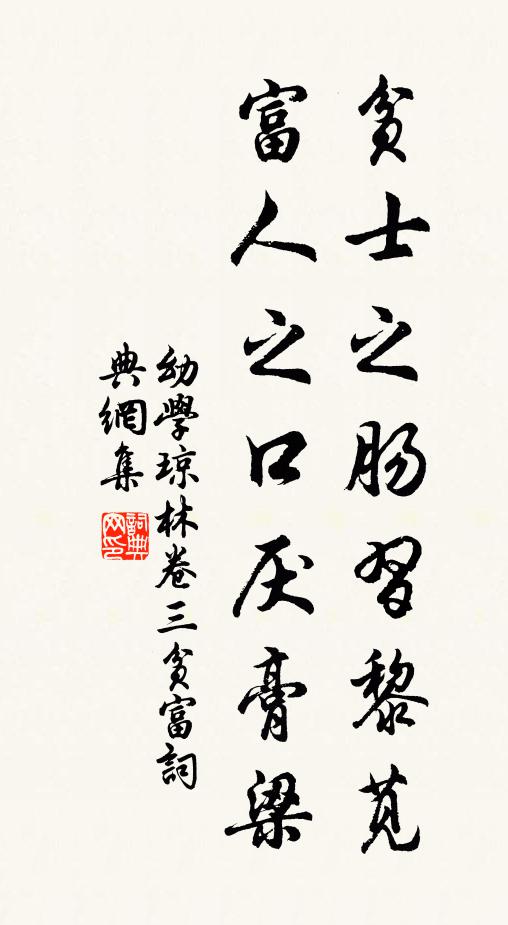 贫士之肠习黎苋
富人之口厌膏粱
幼學琼林卷三贫富詞
典網集
詞典網印